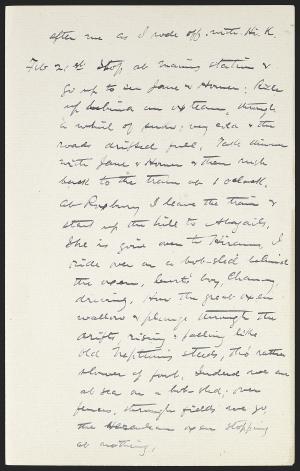 after me as I rode off with Hi. K.
Feb 21st Stop at main station &
go up to see Jane & Homer; Ride
up behind an ox team, through
a whirl of snow; very cold & the
roads drifted full. Take dinner
with Jane & Homer & then rush
back to the train at 1 o'clock.
At Roxbury I leave the train &
start up the hill to Abigails.
She is gone over to Hirams, I
ride over on a bob-sled behind
the oxen, Curtis' boy, Chancy,
driving. How the great oxen
wallow & plunge through the
drifts, rising & falling like
old Neptunes steeds, tho' rather
slower of foot. Indeed we are
at sea on a bob-sled; over
fences, through fields we go
the Herculean oxen stopping
at nothing.